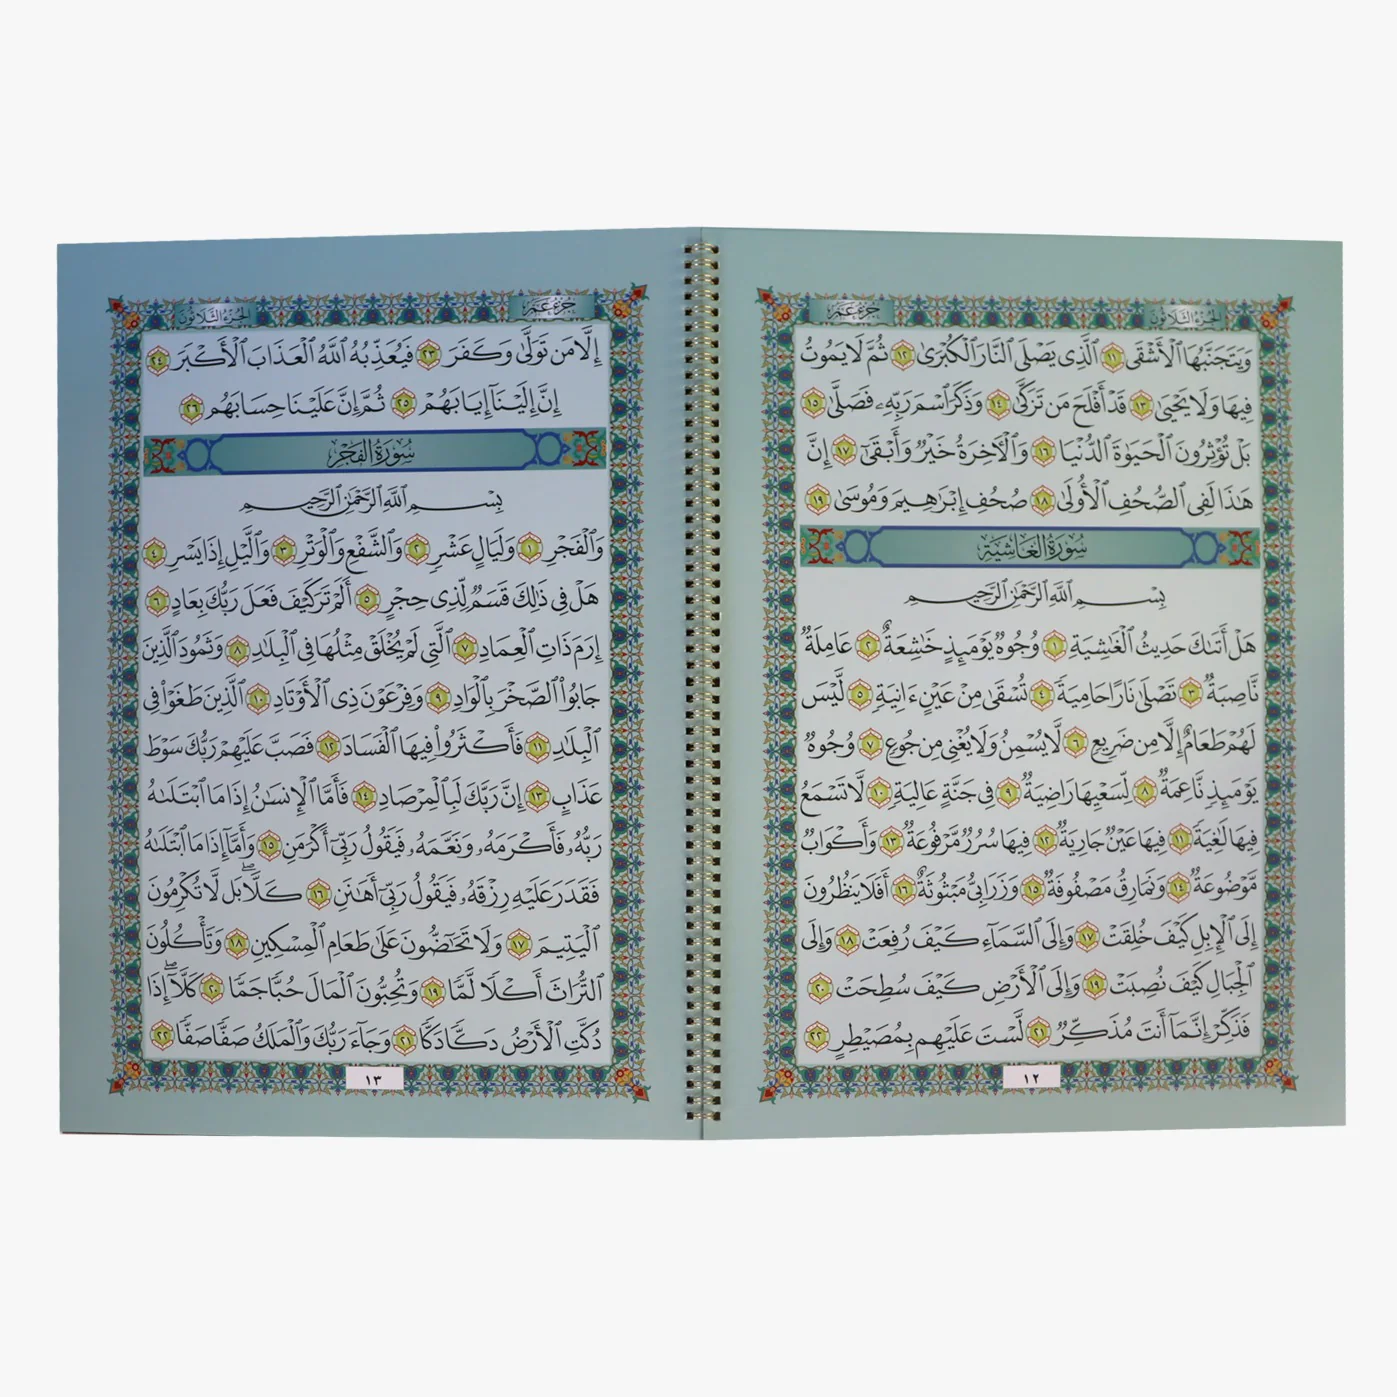 الجزء الثلاثون
جزء عم
وَيَتَجَنَّبُهَا ٱلْأَشْقَى ١١ ٱلَّذِى يَصْلَى ٱلنَّارَ ٱلْكُبْرَىٰ ١٢ ثُمَّ لَا يَمُوتُ
فِيهَا وَلَا يَحْيَىٰ ١٣ قَدْ أَفْلَحَ مَن تَزَكَّىٰ ١٤ وَذَكَرَ ٱسْمَ رَبِّهِۦ فَصَلَّىٰ ١٥
بَلْ تُؤْثِرُونَ ٱلْحَيَوٰةَ ٱلدُّنْيَا ١٦ وَٱلْأَخِرَةُ خَيْرٌ وَأَبْقَىٰٓ ١٧ إِنَّ
هَـٰذَا لَفِى ٱلصُّحُفِ ٱلْأُولَىٰ ١٨ صُحُفِ إِبْرَٰهِيمَ وَمُوسَىٰ ١٩
سُورَةُ الغَاشِيَةِ
بِسْمِ ٱللَّهِ ٱلرَّحْمَـٰنِ ٱلرَّحِيمِ
هَلْ أَتَىٰكَ حَدِيثُ ٱلْغَـٰشِيَةِ ١ وُجُوهٌ يَوْمَئِذٍ خَـٰشِعَةٌ ٢ عَامِلَةٌ
نَّاصِبَةٌ ٣ تَصْلَىٰ نَارًا حَامِيَةً ٤ تُسْقَىٰ مِنْ عَيْنٍ ءَانِيَةٍ ٥ لَّيْسَ
لَهُمْ طَعَامٌ إِلَّا مِن ضَرِيعٍ ٦ لَّا يُسْمِنُ وَلَا يُغْنِى مِن جُوعٍ ٧ وُجُوهٌ
يَوْمَئِذٍ نَّاعِمَةٌ ٨ لِّسَعْيِهَا رَاضِيَةٌ ٩ فِى جَنَّةٍ عَالِيَةٍ ١٠ لَّا تَسْمَعُ
فِيهَا لَـٰغِيَةً ١١ فِيهَا عَيْنٌ جَارِيَةٌ ١٢ فِيهَا سُرُرٌ مَّرْفُوعَةٌ ١٣ وَأَكْوَابٌ
مَّوْضُوعَةٌ ١٤ وَنَمَارِقُ مَصْفُوفَةٌ ١٥ وَزَرَابِىُّ مَبْثُوثَةٌ ١٦ أَفَلَا يَنظُرُونَ
إِلَى ٱلْإِبِلِ كَيْفَ خُلِقَتْ ١٧ وَإِلَى ٱلسَّمَآءِ كَيْفَ رُفِعَتْ ١٨ وَإِلَى
ٱلْجِبَالِ كَيْفَ نُصِبَتْ ١٩ وَإِلَى ٱلْأَرْضِ كَيْفَ سُطِحَتْ ٢٠
فَذَكِّرْ إِنَّمَآ أَنتَ مُذَكِّرٌ ٢١ لَّسْتَ عَلَيْهِم بِمُصَيْطِرٍ ٢٢
١٢
جزء عم
الجزء الثلاثون
إِلَّا مَن تَوَلَّىٰ وَكَفَرَ ٢٣ فَيُعَذِّبُهُ ٱللَّهُ ٱلْعَذَابَ ٱلْأَكْبَرَ ٢٤
إِنَّ إِلَيْنَآ إِيَابَهُمْ ٢٥ ثُمَّ إِنَّ عَلَيْنَا حِسَابَهُم ٢٦
سُورَةُ الفَجْرِ
بِسْمِ ٱللَّهِ ٱلرَّحْمَـٰنِ ٱلرَّحِيمِ
وَٱلْفَجْرِ ١ وَلَيَالٍ عَشْرٍ ٢ وَٱلشَّفْعِ وَٱلْوَتْرِ ٣ وَٱلَّيْلِ إِذَا يَسْرِ ٤
هَلْ فِى ذَٰلِكَ قَسَمٌ لِّذِى حِجْرٍ ٥ أَلَمْ تَرَ كَيْفَ فَعَلَ رَبُّكَ بِعَادٍ ٦
إِرَمَ ذَاتِ ٱلْعِمَادِ ٧ ٱلَّتِى لَمْ يُخْلَقْ مِثْلُهَا فِى ٱلْبِلَـٰدِ ٨ وَثَمُودَ ٱلَّذِينَ
جَابُوا۟ ٱلصَّخْرَ بِٱلْوَادِ ٩ وَفِرْعَوْنَ ذِى ٱلْأَوْتَادِ ١٠ ٱلَّذِينَ طَغَوْا۟ فِى
ٱلْبِلَـٰدِ ١١ فَأَكْثَرُوا۟ فِيهَا ٱلْفَسَادَ ١٢ فَصَبَّ عَلَيْهِمْ رَبُّكَ سَوْطَ
عَذَابٍ ١٣ إِنَّ رَبَّكَ لَبِٱلْمِرْصَادِ ١٤ فَأَمَّا ٱلْإِنسَـٰنُ إِذَا مَا ٱبْتَلَىٰهُ
رَبُّهُۥ فَأَكْرَمَهُۥ وَنَعَّمَهُۥ فَيَقُولُ رَبِّىٓ أَكْرَمَنِ ١٥ وَأَمَّآ إِذَا مَا ٱبْتَلَىٰهُ
فَقَدَرَ عَلَيْهِ رِزْقَهُۥ فَيَقُولُ رَبِّىٓ أَهَـٰنَنِ ١٦ كَلَّا ۖ بَل لَّا تُكْرِمُونَ
ٱلْيَتِيمَ ١٧ وَلَا تَحَـٰٓضُّونَ عَلَىٰ طَعَامِ ٱلْمِسْكِينِ ١٨ وَتَأْكُلُونَ
ٱلتُّرَاثَ أَكْلًا لَّمًّا ١٩ وَتُحِبُّونَ ٱلْمَالَ حُبًّا جَمًّا ٢٠ كَلَّآ ۖ إِذَا
دُكَّتِ ٱلْأَرْضُ دَكًّا دَكًّا ٢١ وَجَآءَ رَبُّكَ وَٱلْمَلَكُ صَفًّا صَفًّا ٢٢
١٣